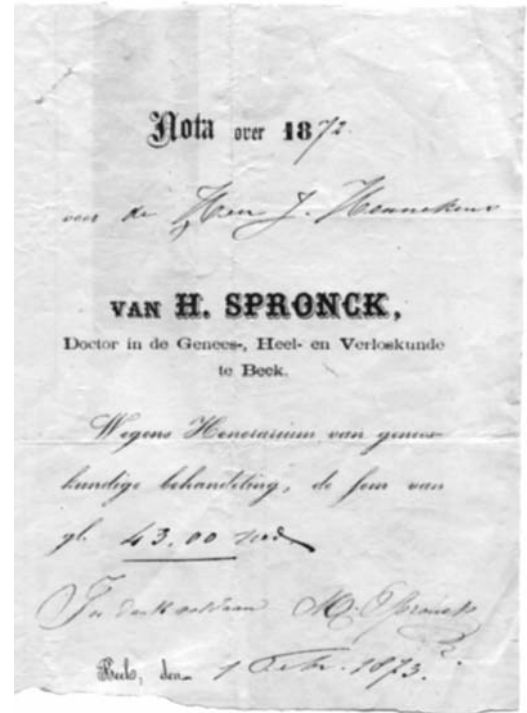 Nota over 1872.
voor de Heer J. Hennekens
VAN H. SPRONCK,
Doctor in de Genees-, Heel- en Verloskunde
te Beek.
Wegens Honorarium van genees
kundige behandeling, de som van
gl. 43.00
In dank voldaan Spronck
Beek, den 1 Febr. 1873.